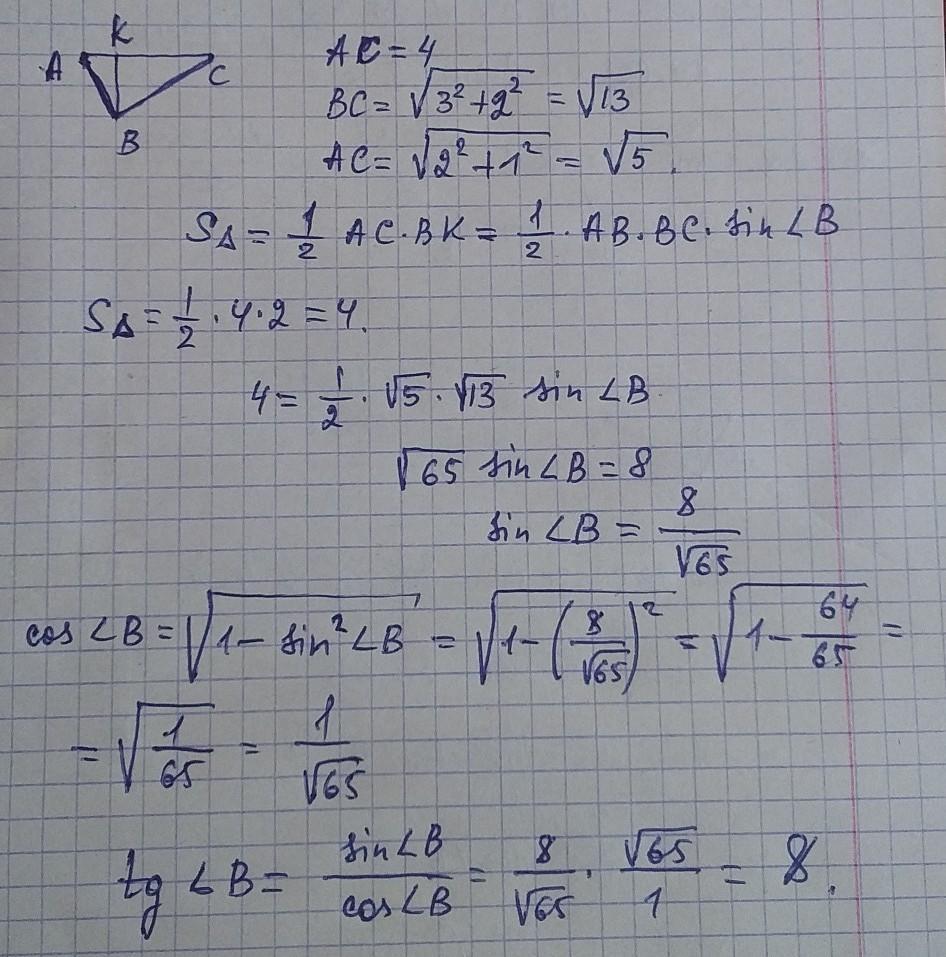 K
A
C
B
AC = 4
BC = √(3² + 2²) = √13
AC = √(2² + 1²) = √5.
S∆ = 1/2 AC · BK = 1/2 · AB · BC · sin ∠B
S∆ = 1/2 · 4 · 2 = 4.
4 = 1/2 · √5 · √13 sin ∠B.
√65 sin ∠B = 8
sin ∠B = 8/√65
cos ∠B = √(1 − sin² ∠B) = √(1 − (8/√65)²) = √(1 − 64/65) =
= √(1/65) = 1/√65
tg ∠B = sin∠B/cos∠B = 8/√65 · √65/1 = 8.